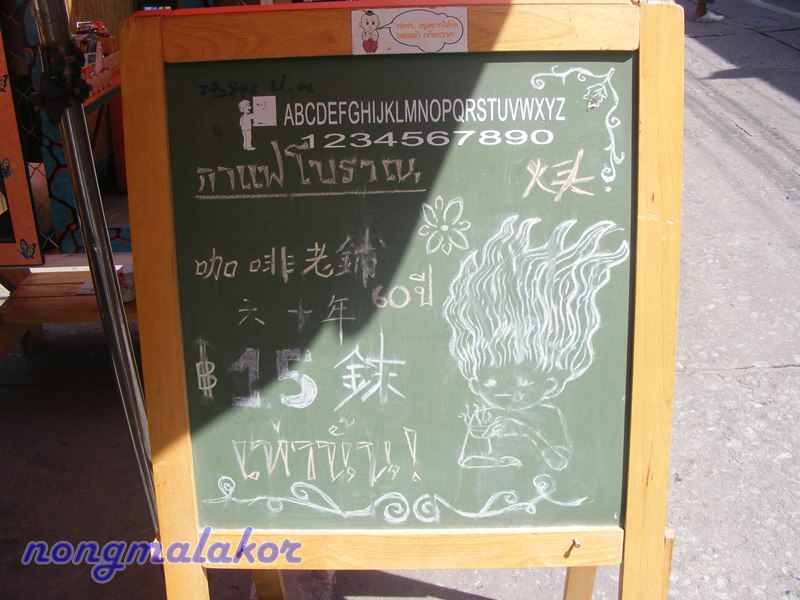 ABCDEFGHIJKLMNOPQRSTUVWXYZ
1234567890
กาแฟโบราณ
咖啡老鋪
60 ปี
六十年
฿15 銇
เท่านั้น!
nongmalakor